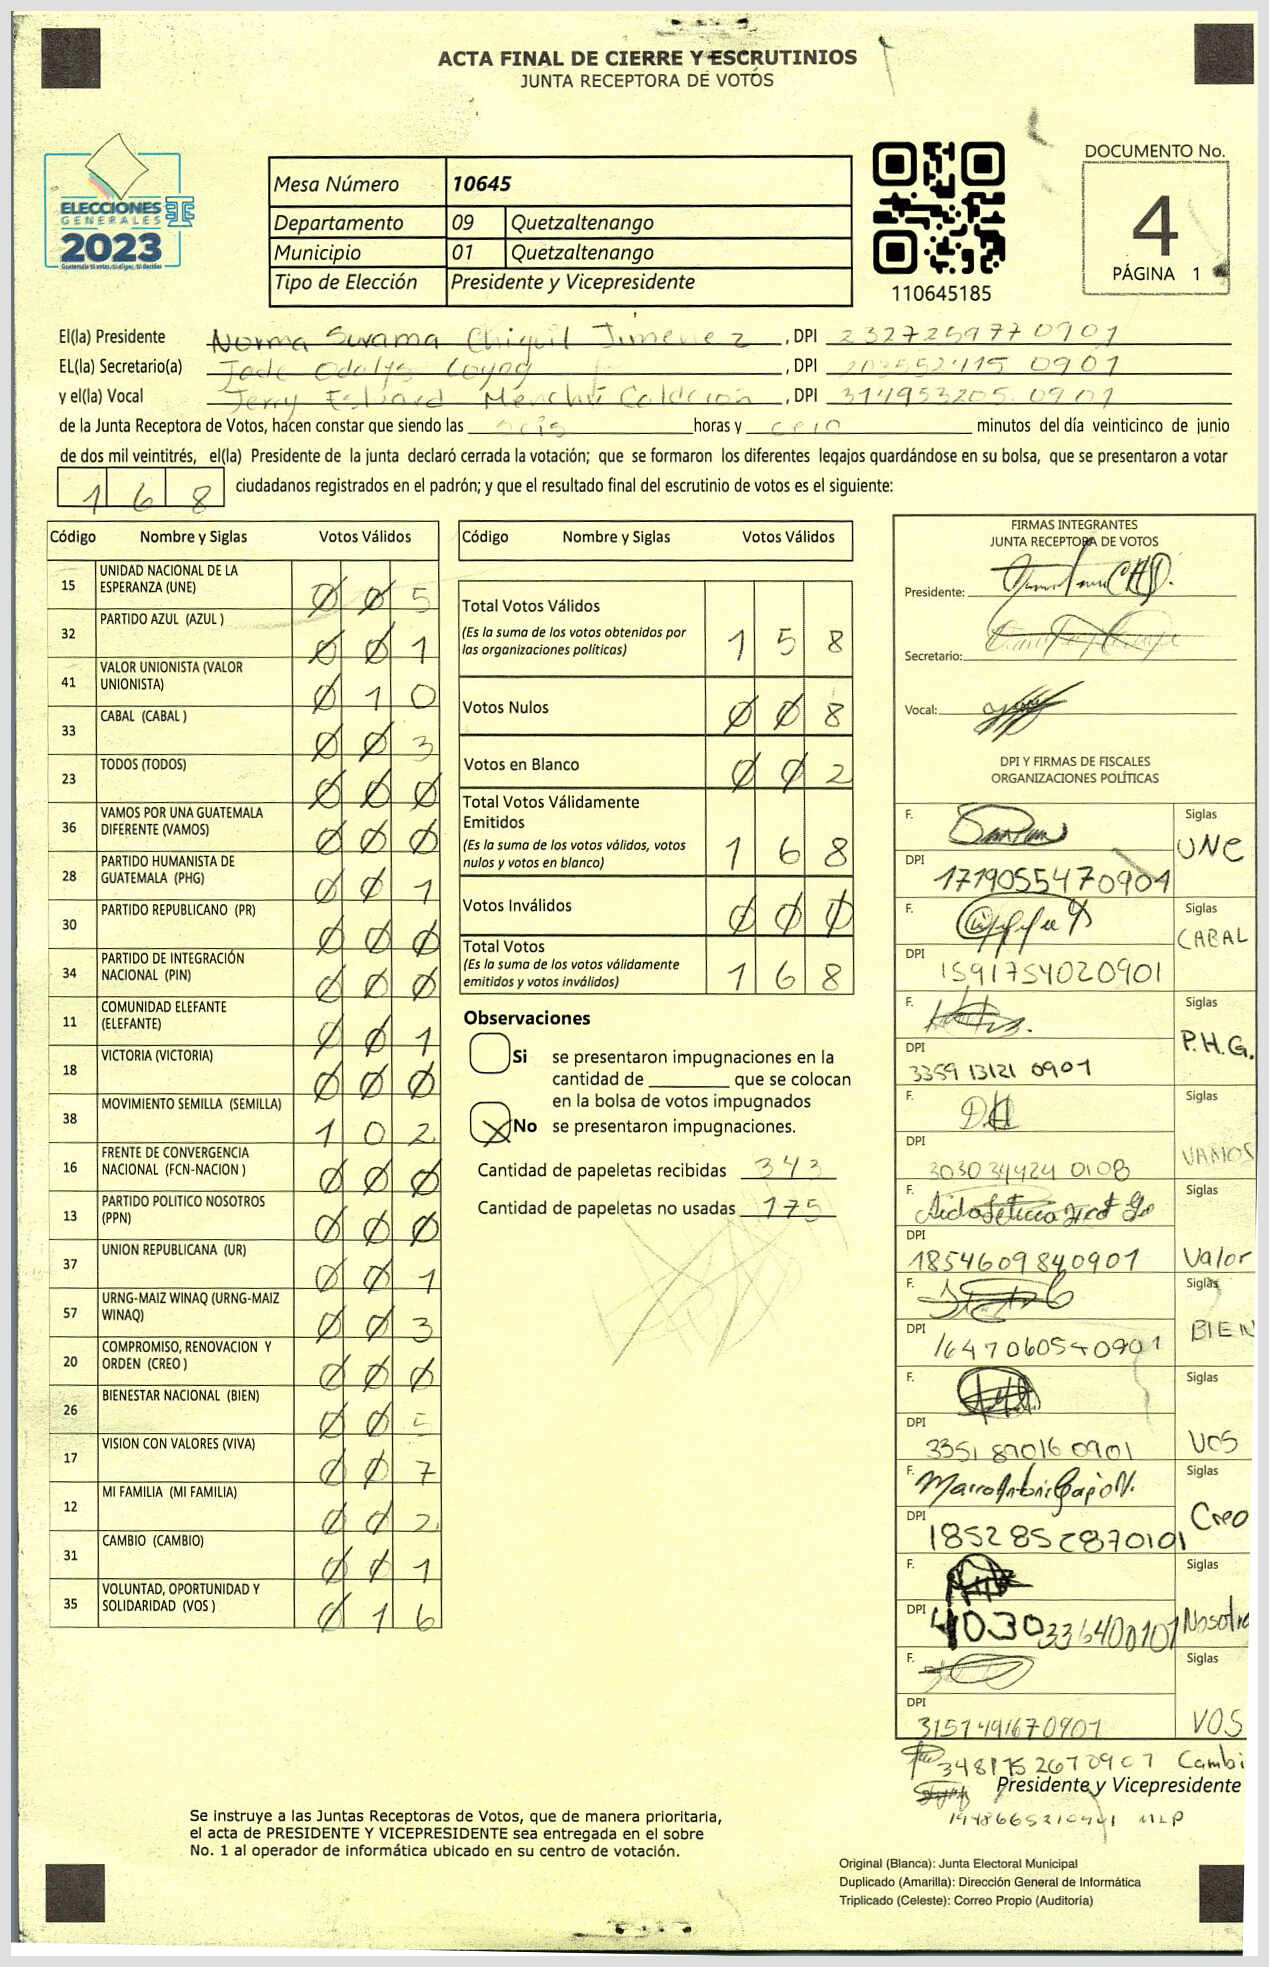 ACTA FINAL DE CIERRE Y ESCRUTINIOS
JUNTA RECEPTORA DE VOTOS
ELECCIONES
GENERALES
2023
Mesa Número 10645
Departamento 09 Quetzaltenango
Municipio 01 Quetzaltenango
Tipo de Elección Presidente y Vicepresidente
110645185
DOCUMENTO No.
4
PÁGINA 1
El(la) Presidente Norma Chiquil Jimenez, DPI 232725977 0901
EL(la) Secretario(a) Jade Odalys, DPI 0901
y el(la) Vocal Jerry Menchú Calderón, DPI 314953205 0901
de la Junta Receptora de Votos, hacen constar que siendo las seis horas y cero minutos del día veinticinco de junio
de dos mil veintitrés, el(la) Presidente de la junta declaró cerrada la votación; que se formaron los diferentes legajos guardándose en su bolsa, que se presentaron a votar
168 ciudadanos registrados en el padrón; y que el resultado final del escrutinio de votos es el siguiente:
Código Nombre y Siglas Votos Válidos
15 UNIDAD NACIONAL DE LA ESPERANZA (UNE) 0 0 5
32 PARTIDO AZUL (AZUL ) 0 0 1
41 VALOR UNIONISTA (VALOR UNIONISTA) 0 1 0
33 CABAL (CABAL ) 0 0 3
23 TODOS (TODOS) 0 0 0
36 VAMOS POR UNA GUATEMALA DIFERENTE (VAMOS) 0 0 0
28 PARTIDO HUMANISTA DE GUATEMALA (PHG) 0 0 1
30 PARTIDO REPUBLICANO (PR) 0 0 0
34 PARTIDO DE INTEGRACIÓN NACIONAL (PIN) 0 0 0
11 COMUNIDAD ELEFANTE (ELEFANTE) 0 0 1
18 VICTORIA (VICTORIA) 0 0 0
38 MOVIMIENTO SEMILLA (SEMILLA) 1 0 2
16 FRENTE DE CONVERGENCIA NACIONAL (FCN-NACION ) 0 0 0
13 PARTIDO POLITICO NOSOTROS (PPN) 0 0 0
37 UNION REPUBLICANA (UR) 0 0 1
57 URNG-MAIZ WINAQ (URNG-MAIZ WINAQ) 0 0 3
20 COMPROMISO, RENOVACION Y ORDEN (CREO ) 0 0 0
26 BIENESTAR NACIONAL (BIEN) 0 0 5
17 VISION CON VALORES (VIVA) 0 0 7
12 MI FAMILIA (MI FAMILIA) 0 0 2
31 CAMBIO (CAMBIO) 0 0 1
35 VOLUNTAD, OPORTUNIDAD Y SOLIDARIDAD (VOS ) 0 1 6
Código Nombre y Siglas Votos Válidos
Total Votos Válidos 1 5 8
(Es la suma de los votos obtenidos por
las organizaciones políticas)
Votos Nulos 0 0 8
Votos en Blanco 0 0 2
Total Votos Válidamente
Emitidos 1 6 8
(Es la suma de los votos válidos, votos
nulos y votos en blanco)
Votos Inválidos 0 0 0
Total Votos 1 6 8
(Es la suma de los votos válidamente
emitidos y votos inválidos)
Observaciones
Si se presentaron impugnaciones en la
cantidad de ________ que se colocan
en la bolsa de votos impugnados
X No se presentaron impugnaciones.
Cantidad de papeletas recibidas 343
Cantidad de papeletas no usadas 175
FIRMAS INTEGRANTES
JUNTA RECEPTORA DE VOTOS
Presidente:
Secretario:
Vocal:
DPI Y FIRMAS DE FISCALES
ORGANIZACIONES POLÍTICAS
F. Siglas UNE
DPI 1719055470901
F. Siglas CABAL
DPI 1591754020901
F. Siglas P.H.G.
DPI 3359 13121 0901
F. Siglas VAMOS
DPI 303034424 0108
F. Siglas Valor
DPI 1854609840901
F. Siglas BIEN
DPI 1647060540901
F. Siglas VOS
DPI 3351 87016 0901
F. Siglas Creo
DPI 1852852870101
F. Siglas Nosotro
DPI 4030336400101
F. Siglas VOS
DPI 3157491670901
348175267 0901 Cambi
Presidente y Vicepresidente
MLP
Se instruye a las Juntas Receptoras de Votos, que de manera prioritaria,
el acta de PRESIDENTE Y VICEPRESIDENTE sea entregada en el sobre
No. 1 al operador de informática ubicado en su centro de votación.
Original (Blanca): Junta Electoral Municipal
Duplicado (Amarilla): Dirección General de Informática
Triplicado (Celeste): Correo Propio (Auditoría)